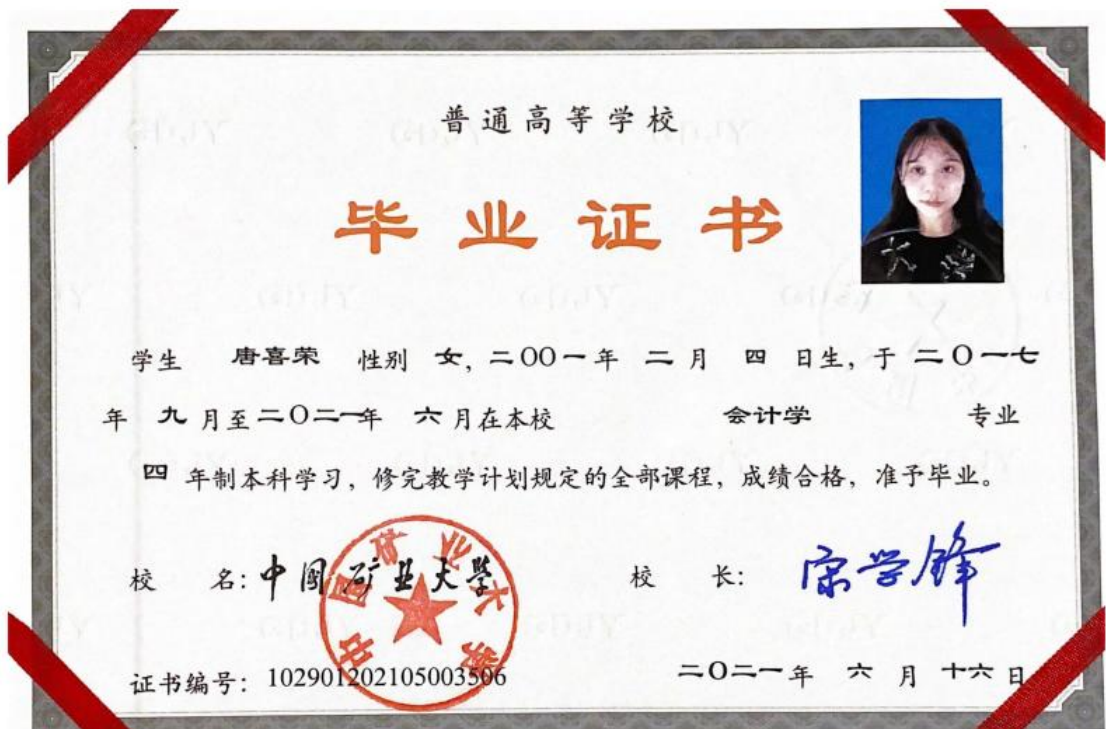 普通高等学校
毕业证书
学生 唐喜荣 性别 女，二〇〇一年 二月 四 日生，于 二〇一七
年 九 月至二〇二一年 六 月在本校 会计学 专业
四 年制本科学习，修完教学计划规定的全部课程，成绩合格，准予毕业。
校 名：中国矿业大学
中国矿业大学
校 长：宋学锋
证书编号：102901202105003506
二〇二一年 六 月 十六 日